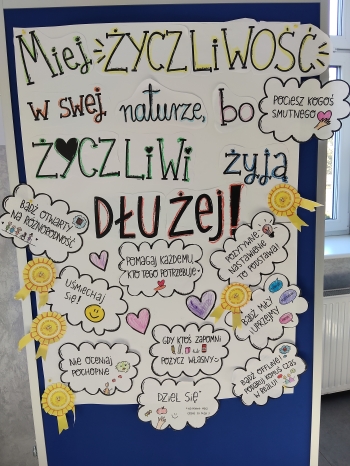 Miej ŻYCZLIWOŚĆ
w swej naturze, bo
ŻYCZLIWI żyją
DŁUŻEJ!
POCIESZ KOGOŚ
SMUTNEGO
BĄDŹ OTWARTY
NA RÓŻNORODNOŚĆ
POMAGAJ KAŻDEMU,
KTO TEGO POTRZEBUJE
POZYTYWNE
NASTAWIENIE
TO PODSTAWA!
UŚMIECHAJ
SIĘ!
BĄDŹ MIŁY
I UPRZEJMY
GDY KTOŚ ZAPOMNI
POŻYCZ WŁASNY
NIE OCENIAJ
POCHOPNIE
BĄDŹ OFFLINE
PODARUJ KOMUŚ CZAS
W REALU!
DZIEL SIĘ